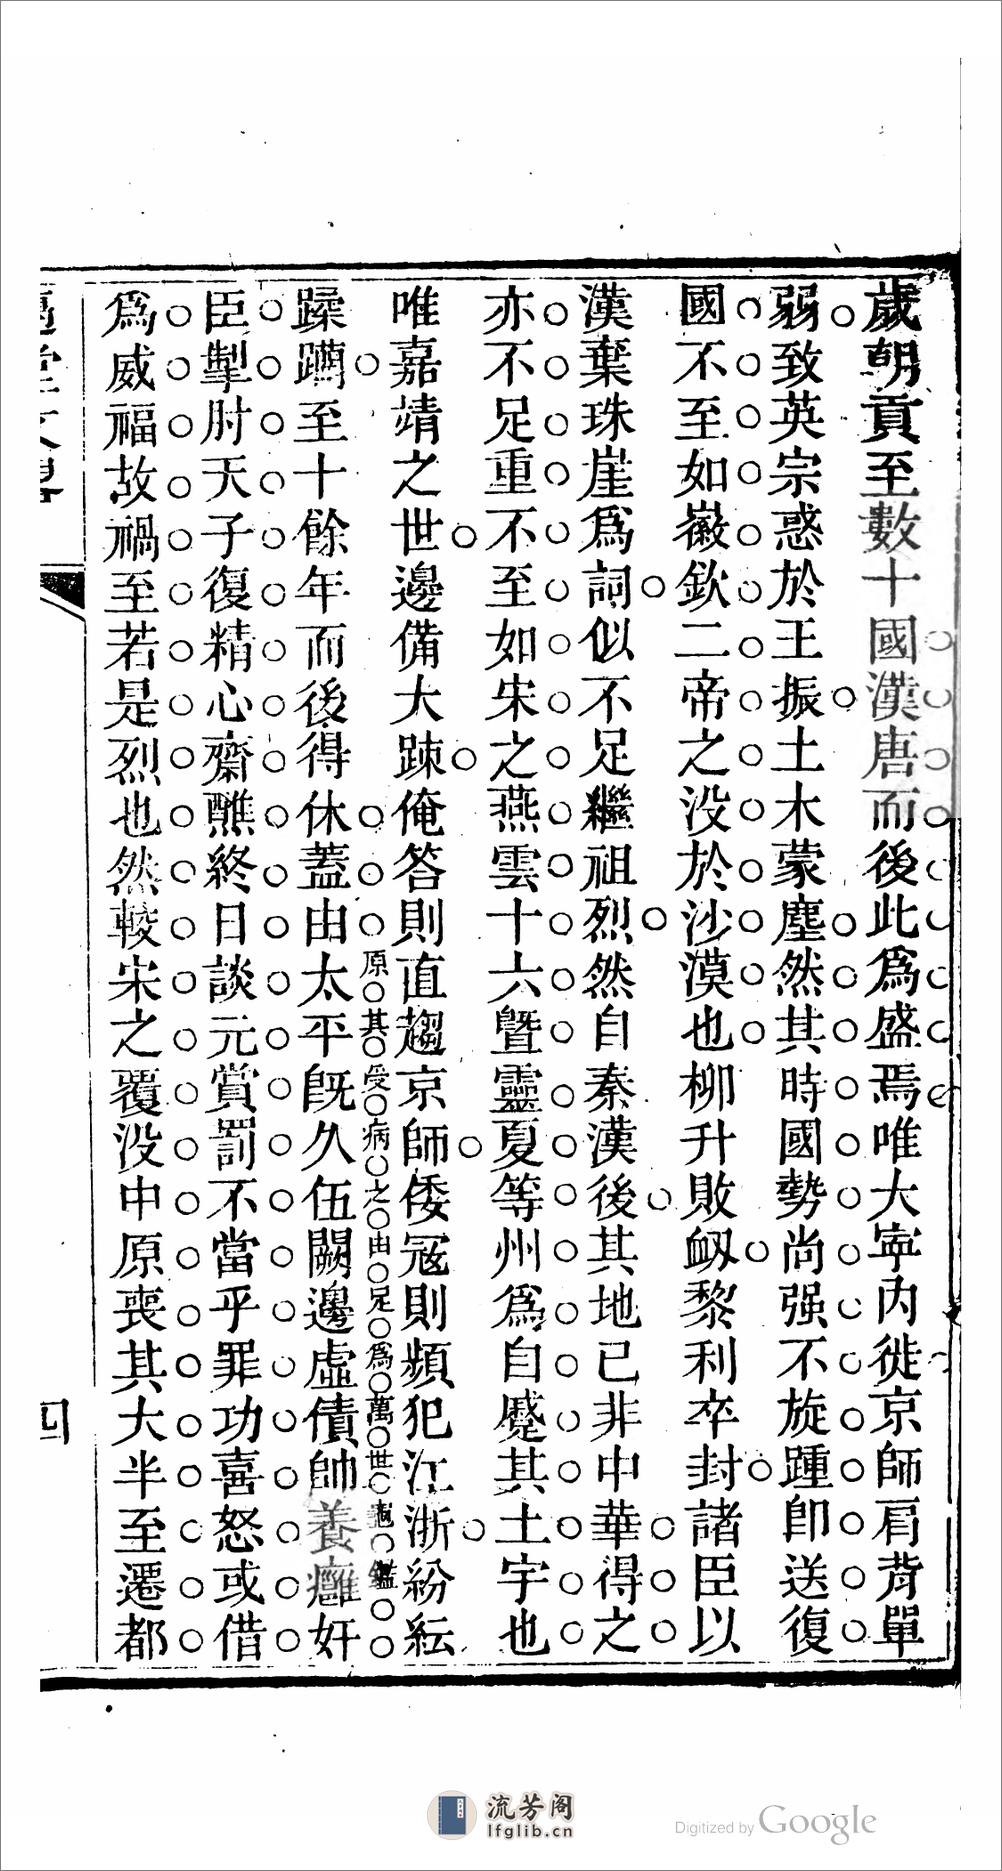 歲朝貢至數十國漢唐而後此爲盛焉唯大寧內徙京師肩背單
弱致英宗惑於王振土木蒙塵然其時國勢尚强不旋踵卽送復
國不至如徽欽二帝之没於沙漠也柳升敗衂黎利卒封諸臣以
漢棄珠崖爲詞似不足繼祖烈然自秦漢後其地已非中華得之
亦不足重不至如宋之燕雲十六暨靈夏等州爲自蹙其土宇也
唯嘉靖之世邊備大踈俺答則直趨京師倭冦則頻犯江浙紛紜
蹂躪至十餘年而後得休蓋由太平旣久伍闕邊虛債帥養癰奸
原其受病之由足爲萬世龜鑑
臣掣肘天子復精心齋醮終日談元賞罰不當乎罪功喜怒或借
爲威福故禍至若是烈也然較宋之覆没中原喪其大半至遷都
四
流芳阁
lfglib.cn
Digitized by Google